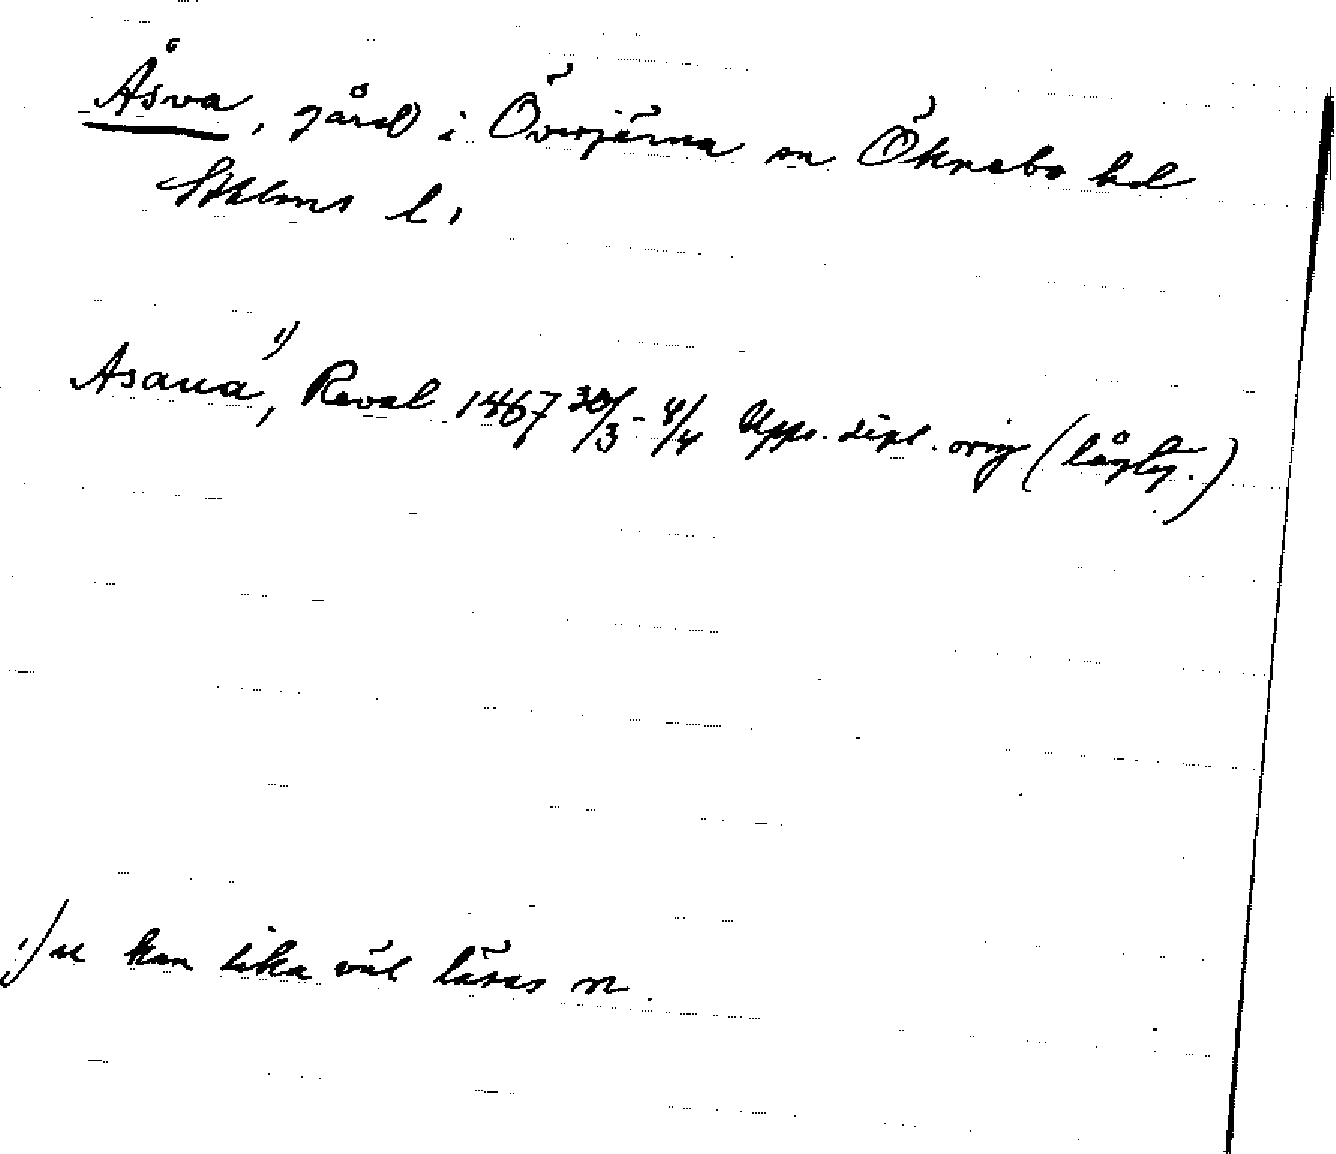 Åsva, gård i Överjärna sn Öknebo hd
Sthlms l.
Asaua¹⁾, Reval 1467 30/3 - 4/4 Upps. dipl. orig (lågty.)
¹⁾ u kan lika väl läsas n.